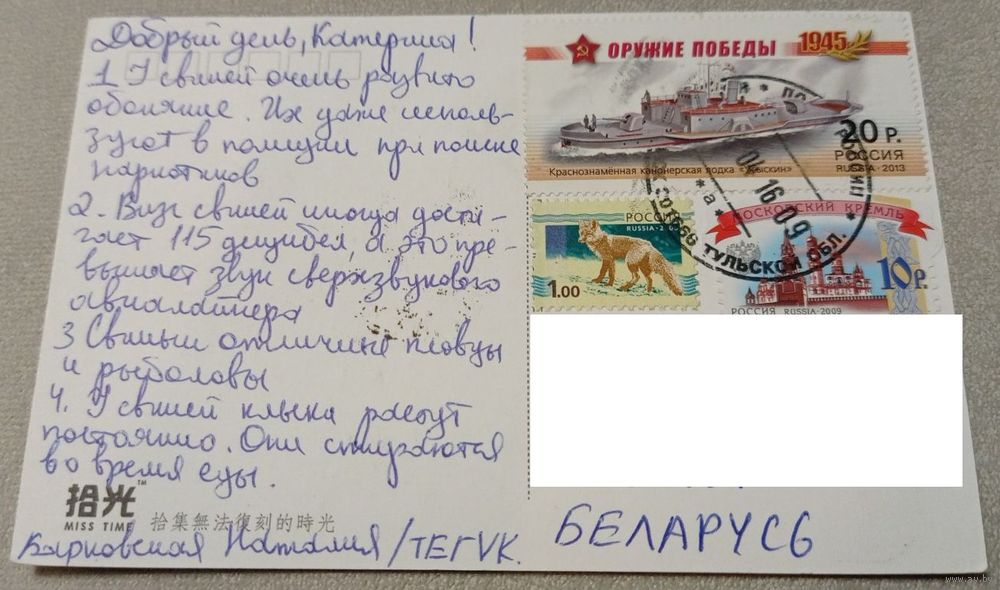 Добрый день, Катерина!
1. У свиней очень развито
обоняние. Их даже исполь-
зуют в полиции при поиске
наркотиков
2. Визг свиней иногда дости-
гает 115 децибел, а это пре-
вышает звук сверхзвукового
авиалайнера
3 Свиньи отличные пловцы
и рыболовы
4. У свиней клыки растут
постоянно. Они стираются
во время еды.
拾光™
MISS TIME 拾集無法復刻的時光
Барковская Наталия/ТЕГVK.
ОРУЖИЕ ПОБЕДЫ 1945
20 Р.
РОССИЯ
RUSSIA·2013
Краснознамённая канонерская лодка
РОССИЯ
RUSSIA·2008
1.00
МОСКОВСКИЙ КРЕМЛЬ
10 Р.
РОССИЯ RUSSIA·2009
04 16 09
*а*
ТУЛЬСКОЙ ОБЛ.
БЕЛАРУСЬ
www.au.by